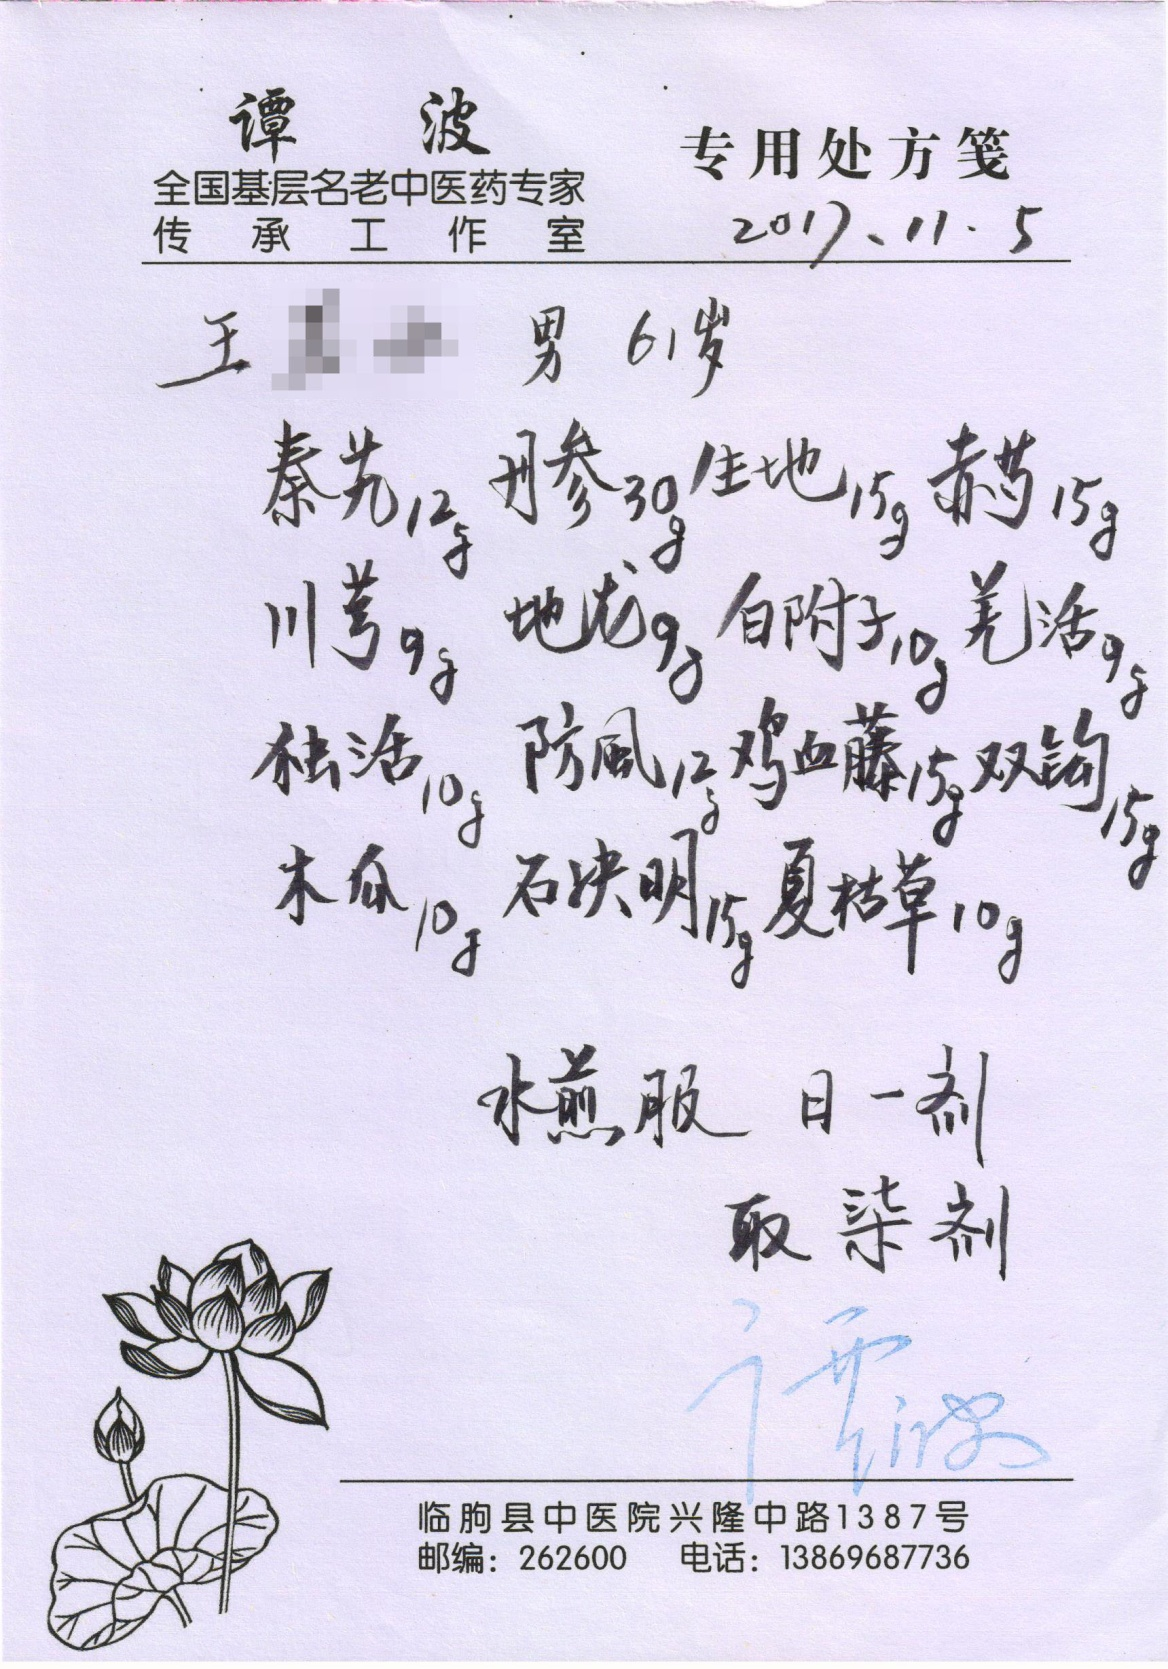 谭 波
全国基层名老中医药专家
传承工作室
专用处方笺
2017.11.5
王 男 61岁
秦艽12g 丹参30g 生地15g 赤芍15g
川芎9g 地龙9g 白附子10g 羌活9g
独活10g 防風12g 鸡血藤15g 双钩15g
木瓜10g 石决明15g 夏枯草10g
水煎服 日一剂
取柒剂
谭波
临朐县中医院兴隆中路1387号
邮编：262600 电话：13869687736